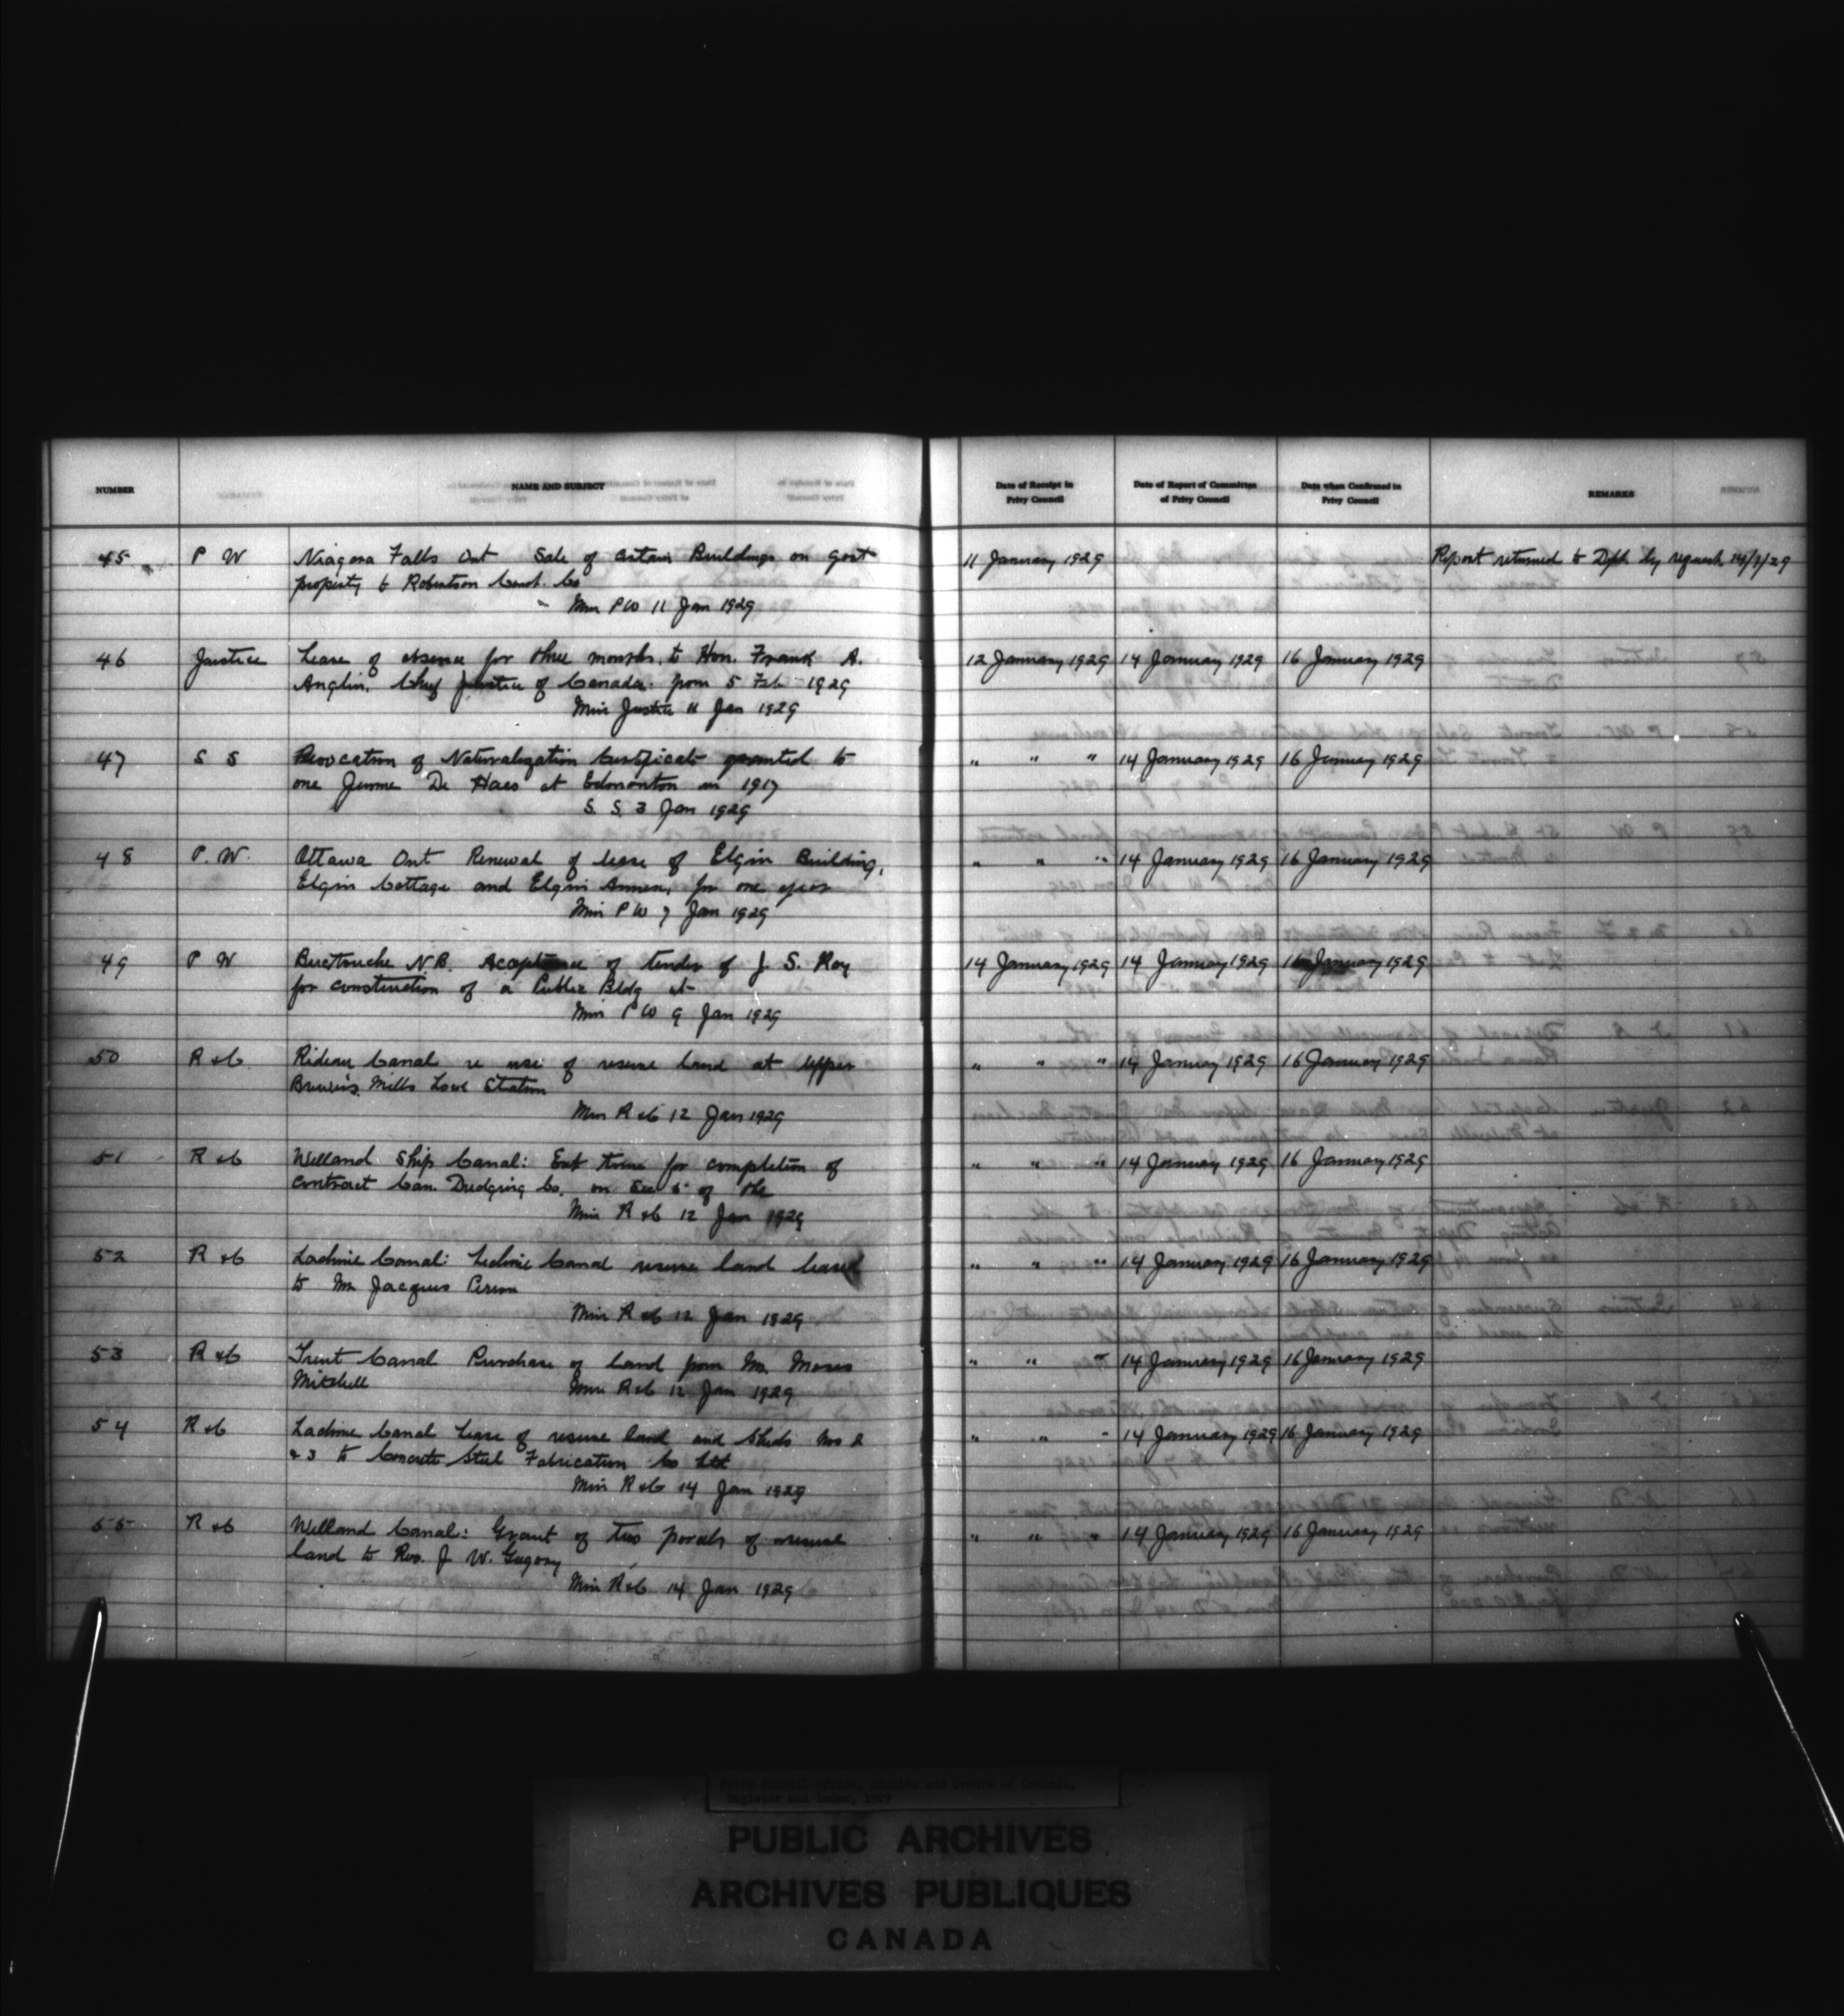 NUMBER
NAME AND SUBJECT
Date of Receipt in Privy Council
Date of Report of Committee of Privy Council
Date when Confirmed in Privy Council
REMARKS
45 P W Niagara Falls Ont Sale of certain Buildings on Govt 11 January 1929 Report returned to Dept by request
property to Robertson Const. Co
Min PW 11 Jan 1929
46 Justice Leave of absence for three months, to Hon. Frank A. 12 January 1929 14 January 1929 16 January 1929
Anglin, Chief Justice of Canada. from 5 Feb 1929
Min Justice 11 Jan 1929
47 S S Revocation of Naturalization Certificate granted to " " " 14 January 1929 16 January 1929
one Jerome De Haes at Edmonton in 1917
S. S. 3 Jan 1929
48 P. W. Ottawa Ont Renewal of lease of Elgin Building, " " " 14 January 1929 16 January 1929
Elgin Cottage and Elgin Annex, for one year
Min P W 7 Jan 1929
49 P W Buctouche N.B. Acceptance of tender of J. S. Roy 14 January 1929 14 January 1929 16 January 1929
for construction of a Public Bldg at
Min P W 9 Jan 1929
50 R & C Rideau Canal re use of reserve land at Upper " " " 14 January 1929 16 January 1929
Brewers Mills Lock Station
Min R & C 12 Jan 1929
51 R & C Welland Ship Canal: Ext time for completion of " " " 14 January 1929 16 January 1929
contract Can. Dredging Co. on Sec 5 of the
Min R & C 12 Jan 1929
52 R & C Lachine Canal: Lachine Canal reserve land leased " " " 14 January 1929 16 January 1929
to Mr Jacques
Min R & C 12 Jan 1929
53 R & C Trent Canal Purchase of land from Mr. Moses " " " 14 January 1929 16 January 1929
Mitchell Min R & C 12 Jan 1929
54 R & C Lachine Canal Lease of reserve land and Sheds Nos 2 " " " 14 January 1929 16 January 1929
& 3 to Concrete Steel Fabrication Co Ltd
Min R & C 14 Jan 1929
55 R & C Welland Canal: Grant of two parcels of land " " " 14 January 1929 16 January 1929
land to Rev. J W. Gregory
Min R & C 14 Jan 1929
Privy Council Office, Minutes and Orders in Council,
Register and Index, 1929
PUBLIC ARCHIVES
ARCHIVES PUBLIQUES
CANADA